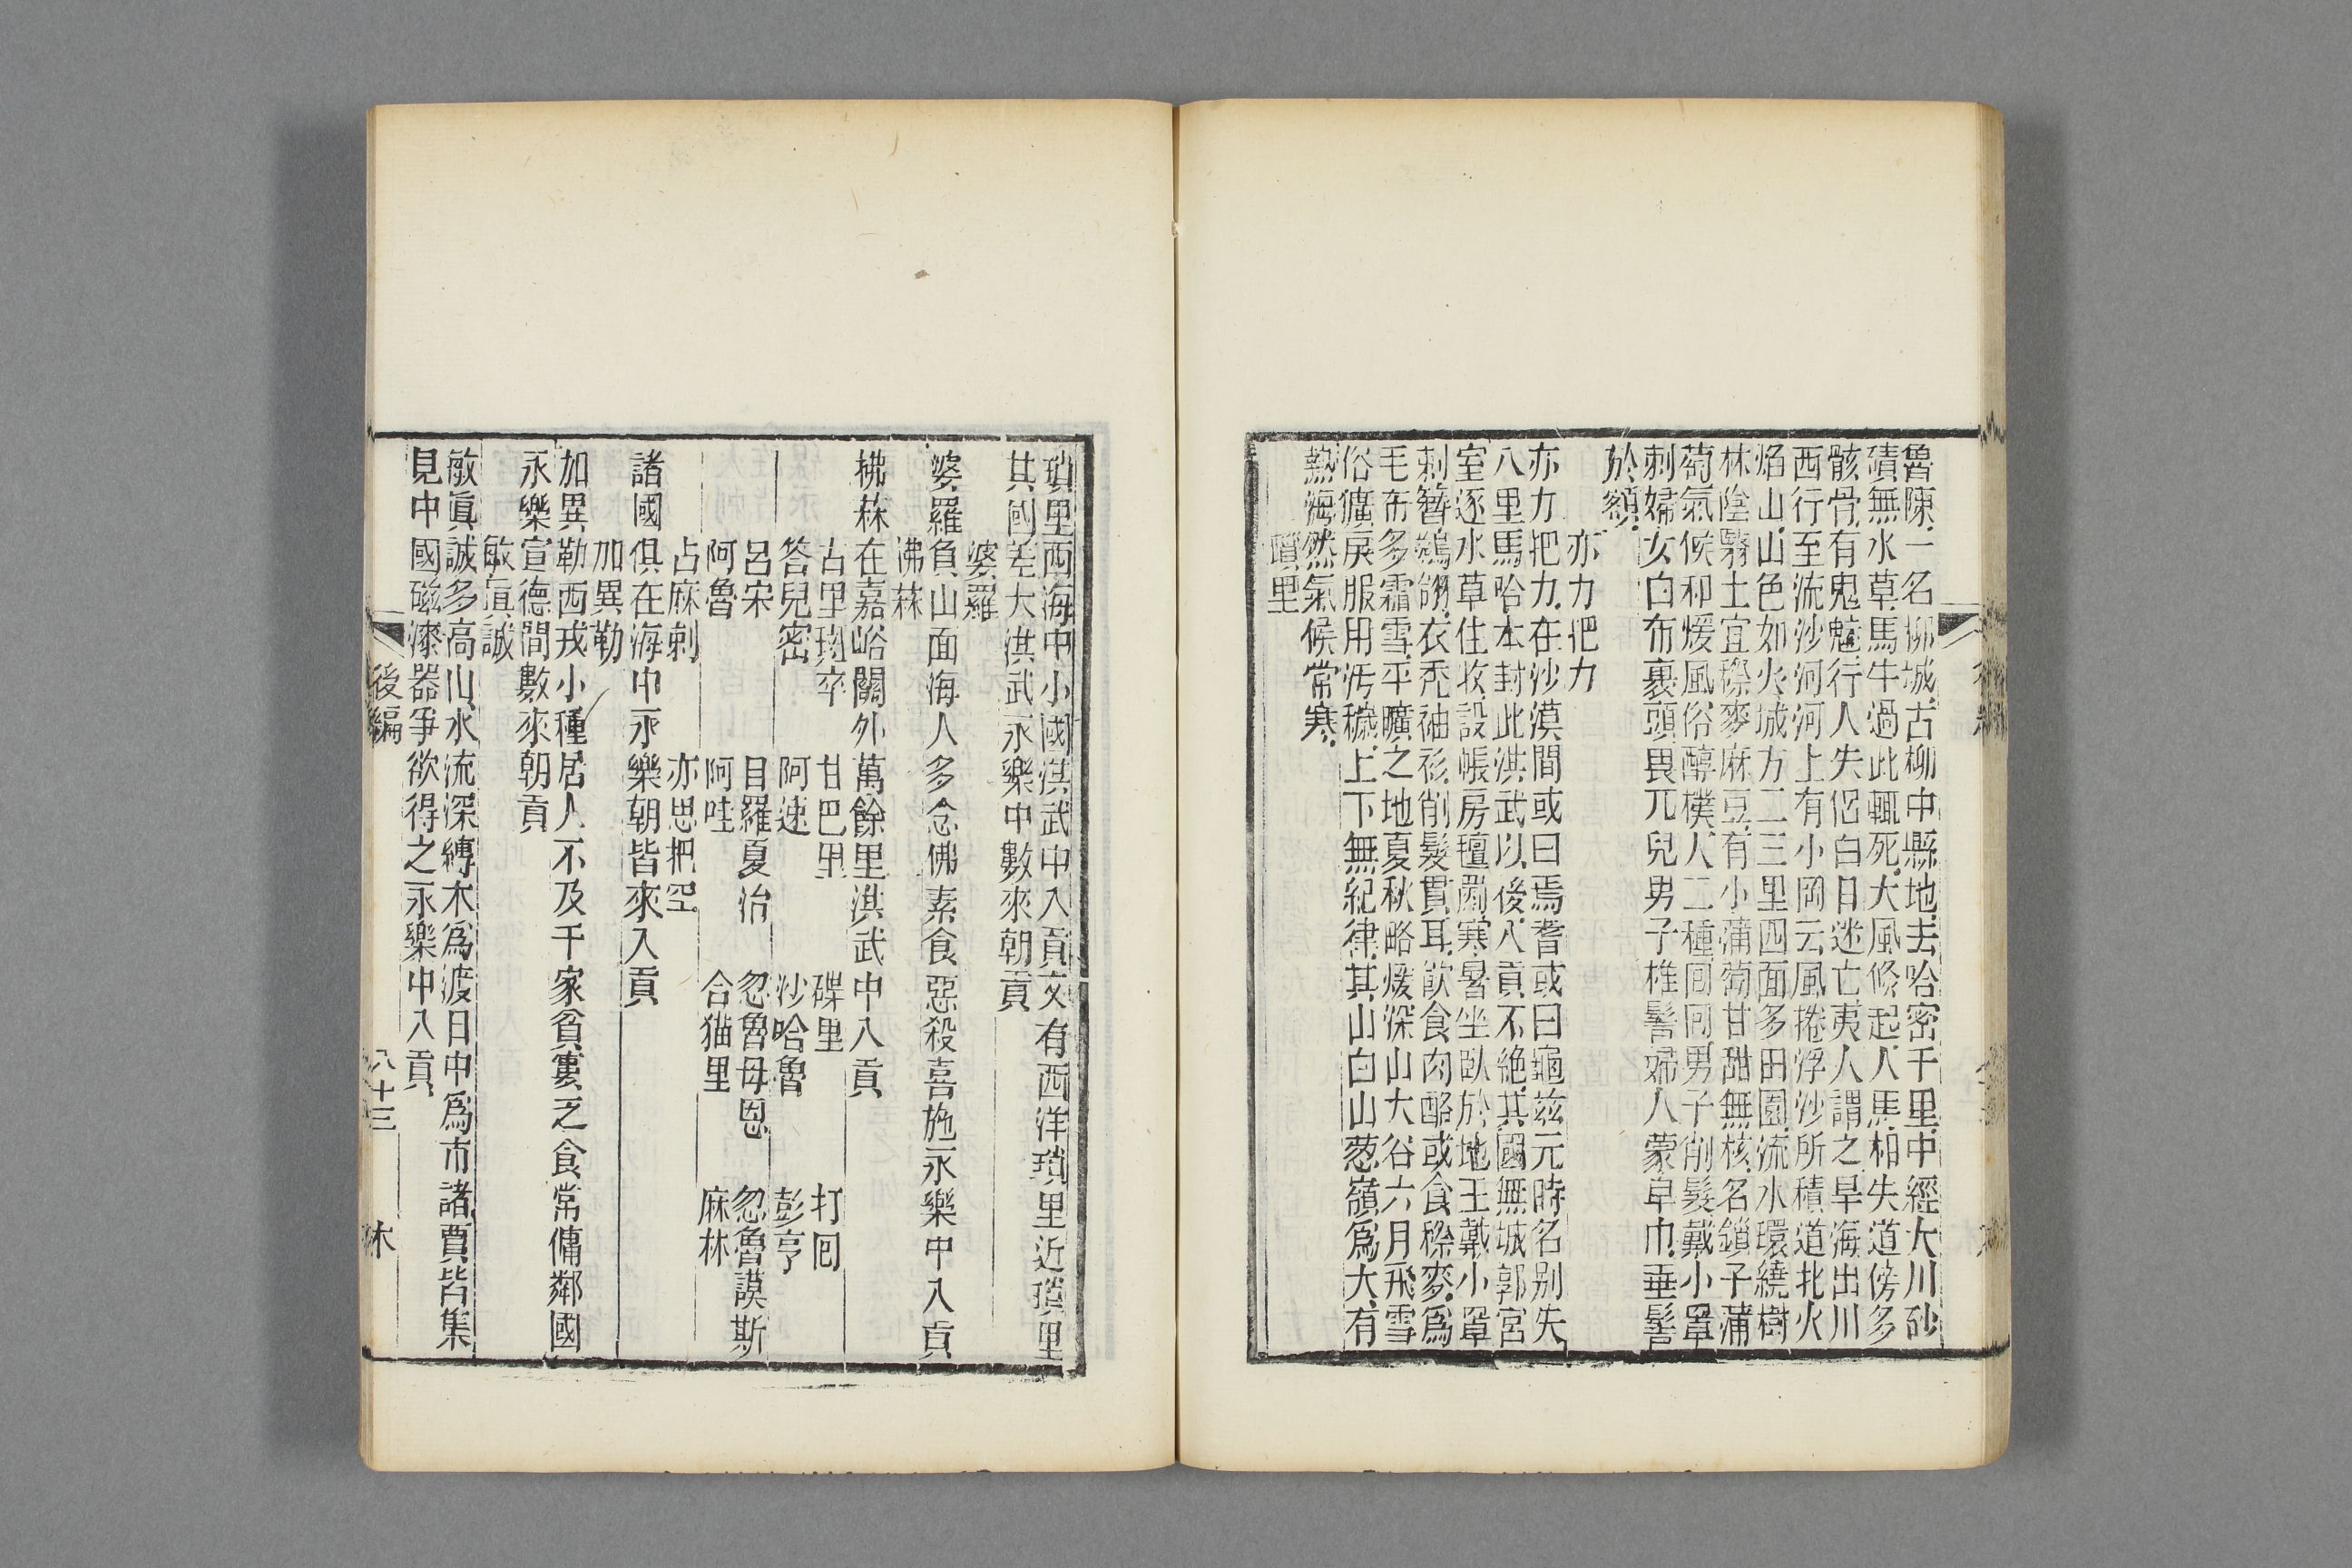 魯陳一名柳城古柳中縣地去哈密千里中經大川砂
磧無水草馬牛過此輒死大風倐起人馬相失道傍多
骸骨有鬼魅行人失侶白日迷亡夷人謂之旱海出川
西行至流沙河河上有小岡云風捲浮沙所積道北火
焰山山色如火城方二三里四面多田園流水環繞樹
林陰翳土宜穄麥麻豆有小蒲萄甘甜無核名鎖子蒲
萄氣候和煖風俗醇樸人二種回回男子削髮戴小罩
剌婦女白布裹頭畏兀兒男子椎髻婦人蒙皁巾垂髻
於額
亦力把力
亦力把力在沙漠間或曰焉耆或曰龜茲元時名别失
八里馬哈木封此洪武以後入貢不絶其國無城郭宮
室逐水草住牧設帳房氊罽寒暑坐臥於地王戴小罩
剌簪鷀翎衣禿袖衫削髮貫耳飲食肉酪或食穄麥爲
毛布多霜雪平曠之地夏秋略煖深山大谷六月飛雪
俗獷戾服用汚穢上下無紀律其山白山葱嶺爲大有
熱海然氣候常寒
瑣里
瑣里西海中小國洪武中入貢又有西洋瑣里近瑣里
其國差大洪武永樂中數來朝貢
婆羅
婆羅負山面海人多念佛素食惡殺喜施永樂中入貢
沸菻
拂菻在嘉峪關外萬餘里洪武中入貢
古里班卒 甘巴里 碟里 打回
答兒密 阿速 沙哈魯 彭亨
呂宋 目羅夏治 忽魯母恩 忽魯謨斯
阿魯 阿哇 合猫里 麻林
占麻剌 亦思把空
諸國俱在海中永樂朝皆來入貢
加異勒
加異勒西戎小種居人不及千家貧寠乏食常傭鄰國
永樂宣德間數來朝貢
敏眞誠
敏眞誠多高山水流深縛木爲渡日中爲市諸賈皆集
見中國磁漆器爭欲得之永樂中入貢
後編
八十三
木